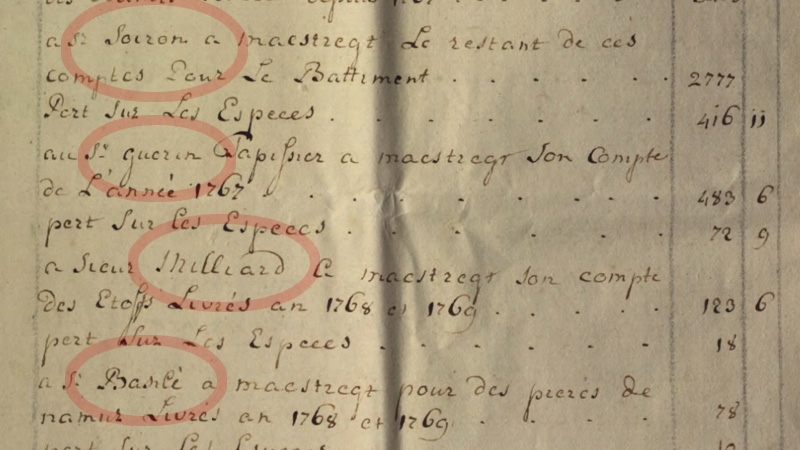 a Sr Soiron a maestregt Le restant de ces
comptes Pour Le Battiment . . . . . . 2777
Pert Sur Les Especes . . . . . . . . 416 11
au Sr guerin Tapissier a maestregt Son Compte
de L'année 1767 . . . . . . . . . 483 6
pert Sur Les Especes . . . . . . . 72 9
a Sieur Milliard a maestregt Son compte
des Etoffs Livrés an 1768 et 1769 . . . . . 123 6
pert Sur Les Especes . . . . . . 18
a Sr a maestregt pour des pieres de
namur Livrés an 1768 et 1769 . . . . . 78
pert Sur Les Especes